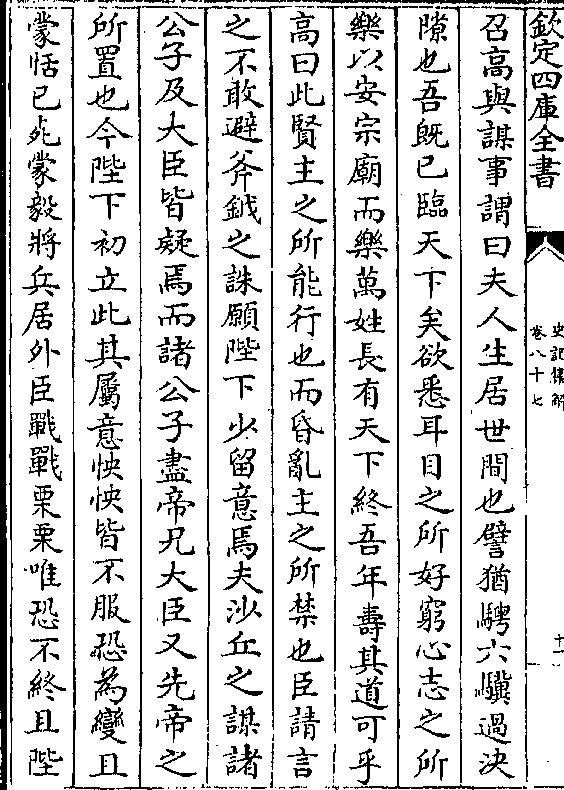 欽定四庫全書
史記集解
卷八十七
十一
召高與謀事謂曰夫人生居世間也譬猶騁六驥過決
隙也吾既已臨天下矣欲悉耳目之所好窮心志之所
樂以安宗廟而樂萬姓長有天下終吾年壽其道可乎
高曰此賢主之所能行也而昏亂主之所禁也臣請言
之不敢避斧鉞之誅願陛下少留意焉夫沙丘之謀諸
公子及大臣皆疑焉而諸公子盡帝兄大臣又先帝之
所置也今陛下初立此其屬意怏怏皆不服恐為變且
蒙恬已死蒙毅將兵居外臣戰戰栗栗唯恐不終且陛